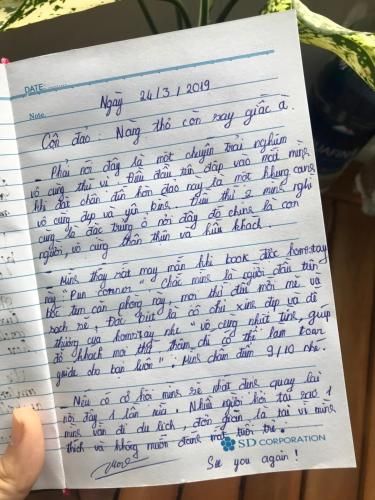 DATE:
Note.
Ngày 24/3/2019
Côn đảo. Nàng thơ còn say giấc à.
- Phải nói đây là một chuyến trải nghiệm
vô cùng thú vị. Điều đầu tiên đập vào mắt mình
khi đặt chân đến hòn đảo này là một khung cảnh
vô cùng đẹp và yên bình. Điều thứ 2 mình nghĩ
cũng là đặc trưng ở nơi đây đó chính là con
người, vô cùng thân thiện và hiếu khách.
- Mình thấy rất may mắn khi book được homestay
này "Pun corner" chắc mình là người đầu tiên
bóc tem căn phòng này, mọi thứ đều mới mẻ và
sạch sẽ, Đặc biệt là có chị xinh đẹp và dễ
thương của homestay nhé "vô cùng nhiệt tình, giúp
đỡ khách mọi thứ thậm chí có thể làm tour
guide cho bạn luôn". Mình chấm điểm 9/10 nhé.
- Nếu có cơ hội mình sẽ nhất định quay lại
nơi đây 1 lần nữa. Nhiều người hỏi tại sao 1
mình vẫn đi du lịch, đơn giản là tại vì mình
thích và không muốn đánh mất tuổi trẻ.
SD CORPORATION
See you again!